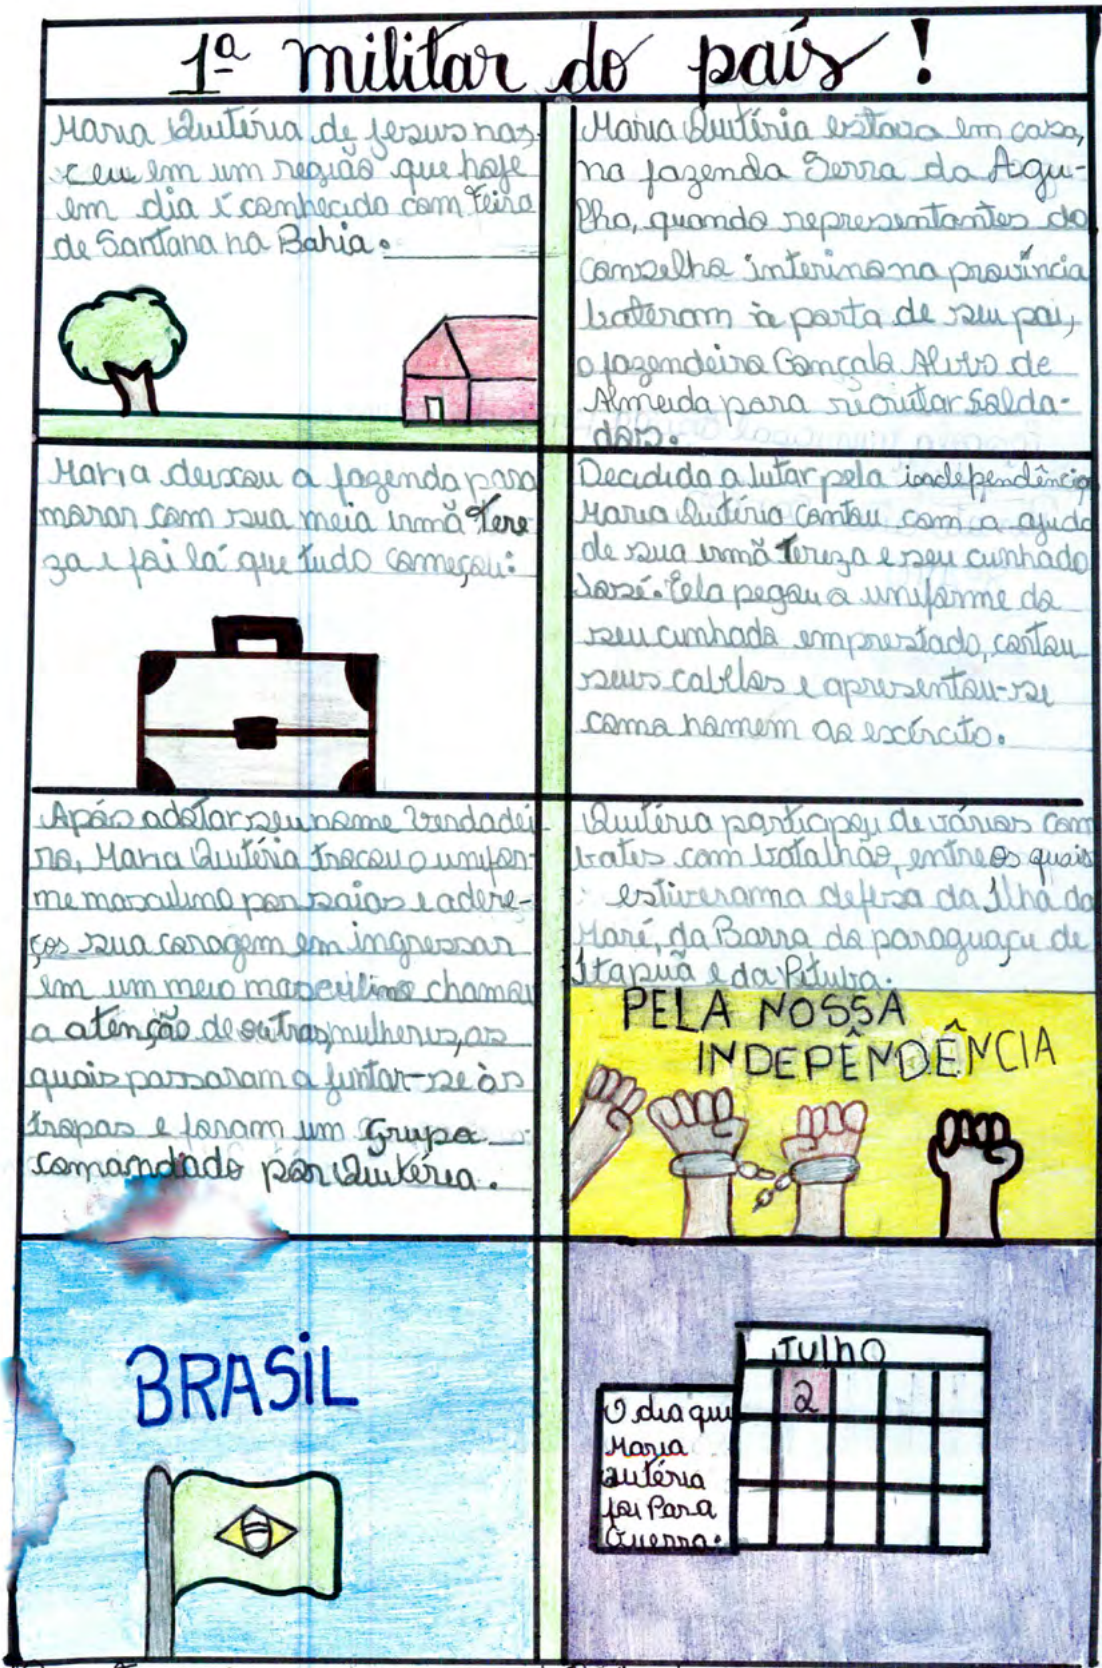 1ª militar do país!
Maria Quitéria de Jesus nas-
ceu em um região que hoje
em dia é conhecido com Feira
de Santana na Bahia.
Maria Quitéria estava em casa,
na fazenda Serra da Agu-
lha, quando representantes do
conselho interino na província
bateram à porta de seu pai,
o fazendeiro Gonçalo Alves de
Almeida para recrutar Solda-
dos.
Maria deixou a fazenda para
morar com sua meia irmã Tere
za e foi lá que tudo começou:
Decidida a lutar pela independência
Maria Quitéria contou com a ajuda
de sua irmã Tereza e seu cunhado
José. Ela pegou o uniforme do
seu cunhado emprestado, cortou
seus cabelos e apresentou-se
como homem ao exército.
Após adotar seu nome verdadei-
ro, Maria Quitéria trocou o unifor-
me masculino por saias e adere-
ços sua coragem em ingressar
em um meio masculino chamou
a atenção de outras mulheres, as
quais passaram a juntar-se às
tropas e foram um Grupo
comandado por Quitéria.
Quitéria participou de vários com
bates com batalhão, entre os quais
estiveram na defesa da Ilha do
Maré, da Barra do paraguaçu de
Itapuã e da Pituba.
PELA NOSSA
INDEPÊNDÊNCIA
BRASIL
Julho
2
O dia que
Maria
Quitéria
foi Para
Guerra.